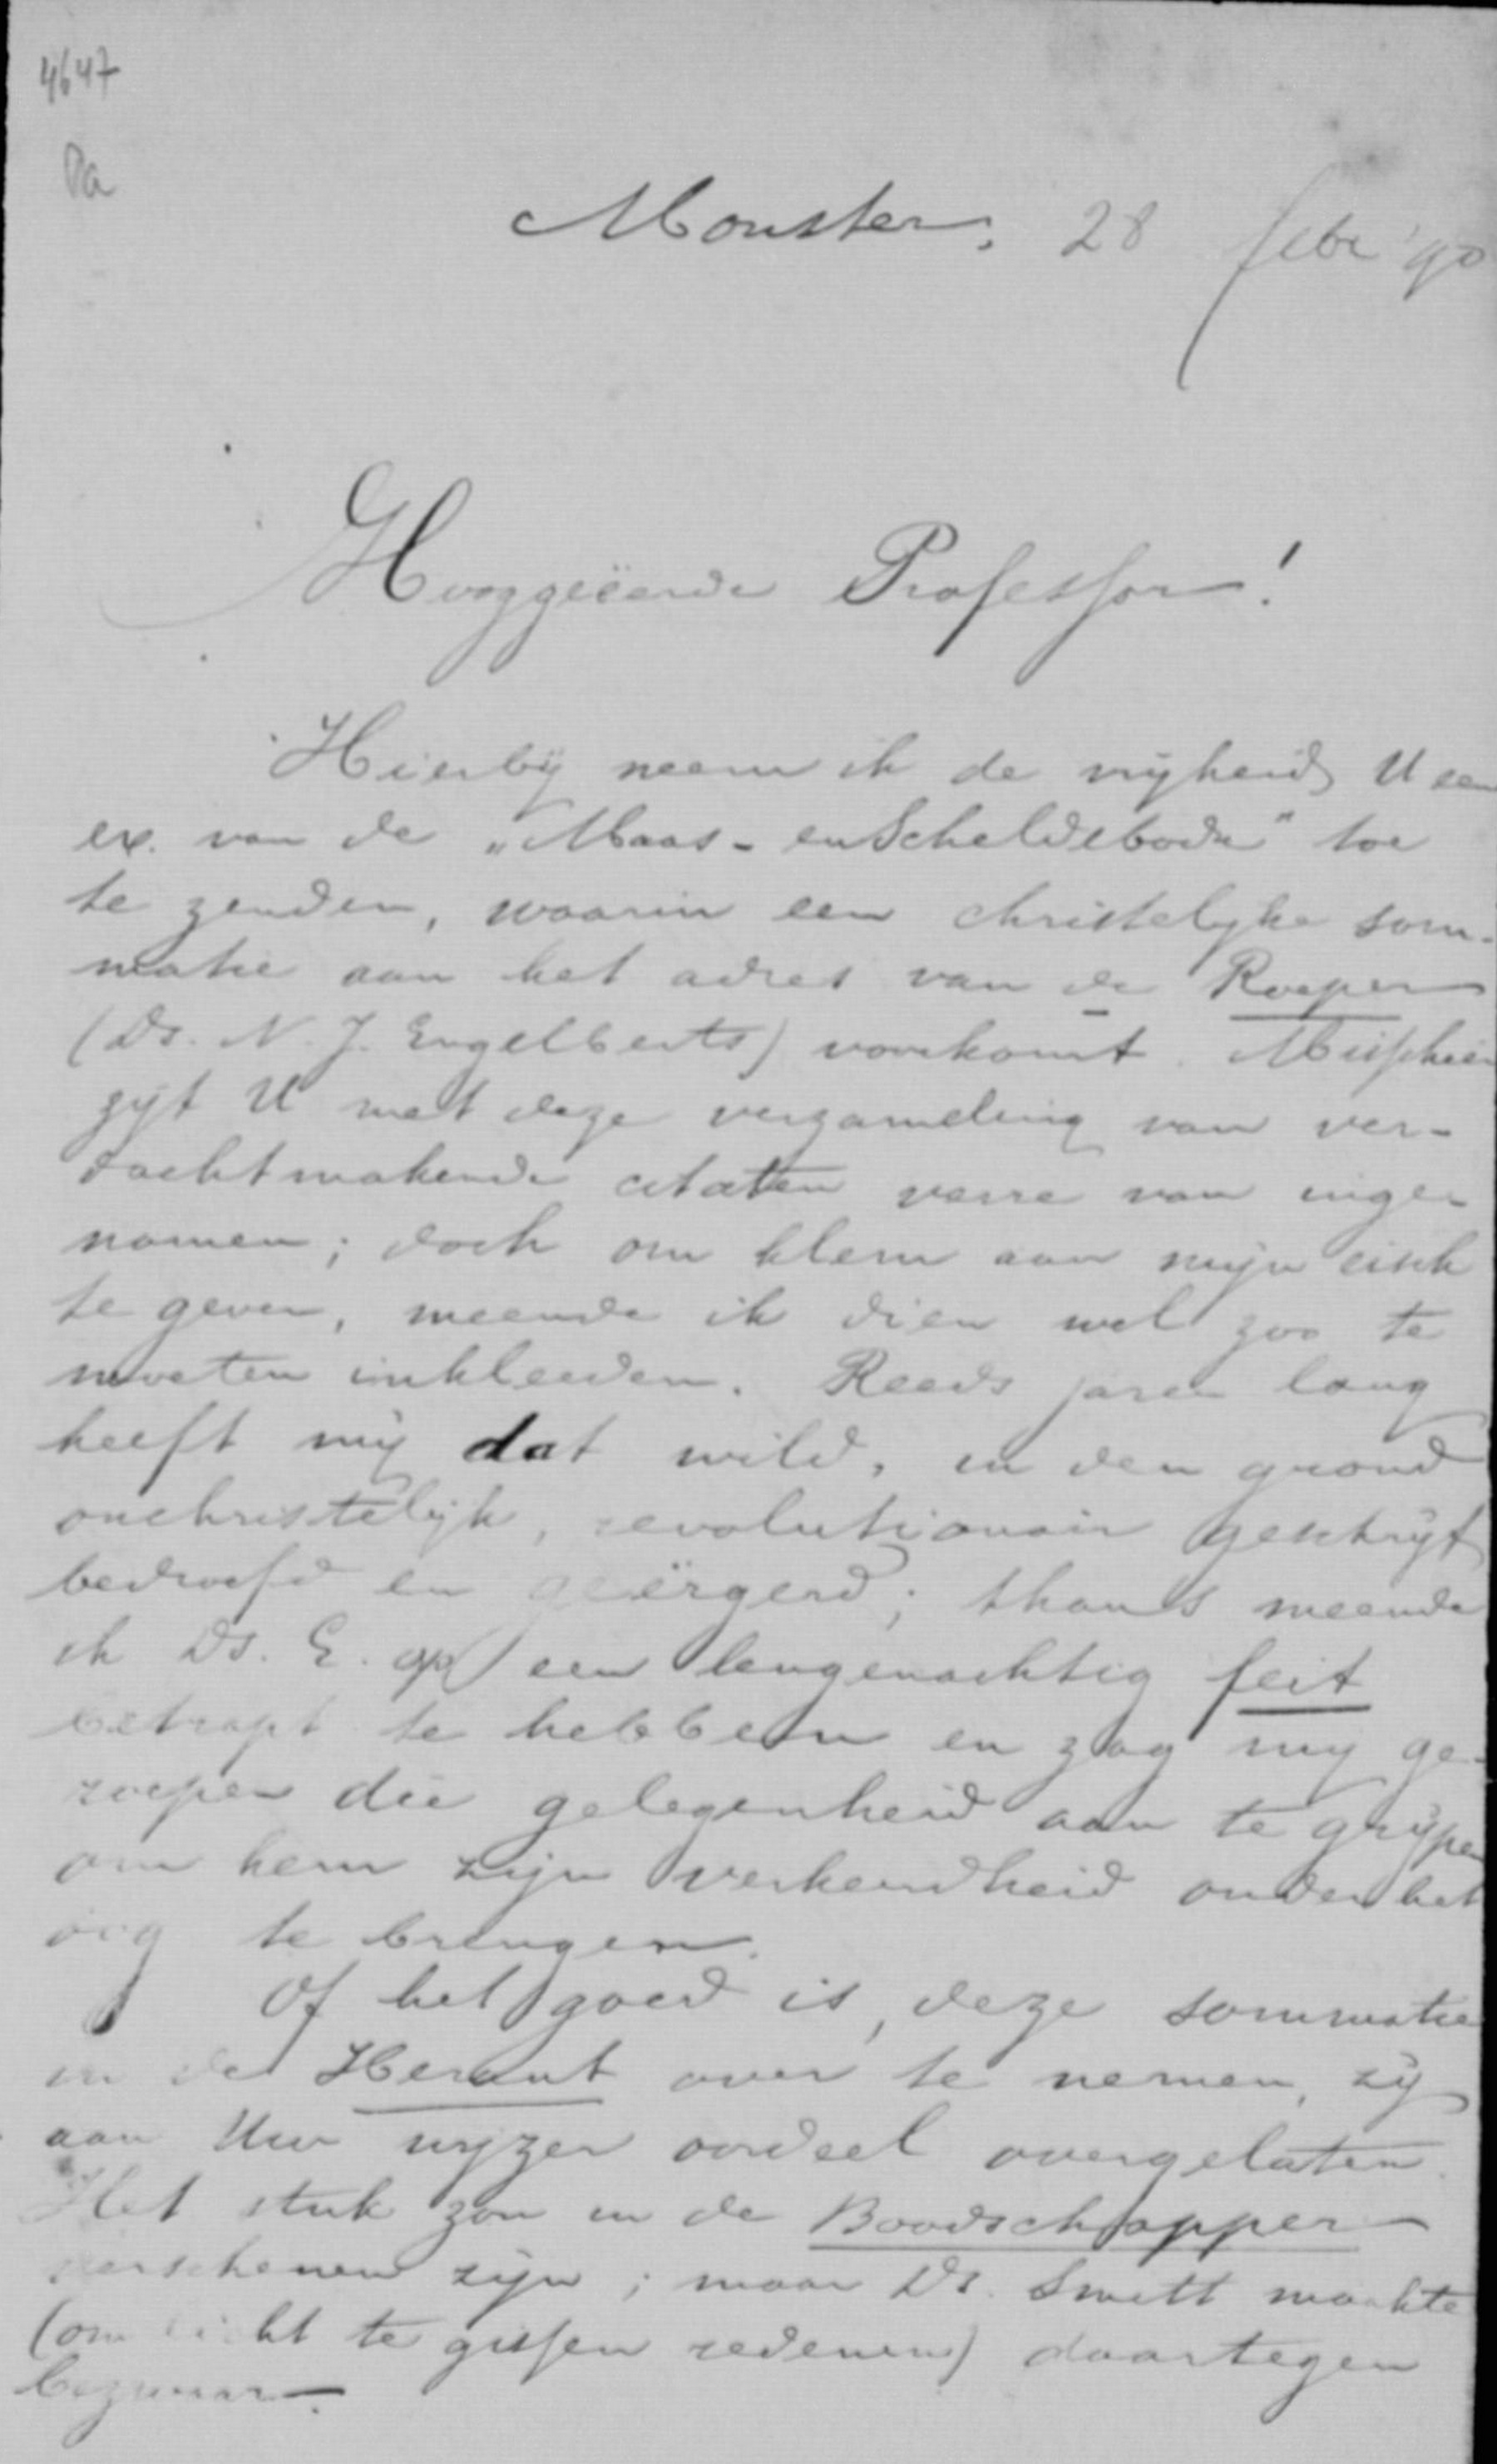 4647
Pa
Monster, 28 febr '90
Hooggeëerde Professor!
Hierbij neem ik de vrijheid U een
ex. van de „Maas- en Scheldebode" toe
te zenden, waarin een christelijke som-
matie aan het adres van de Roeper
(Ds. N. J. Engelberts) voorkomt. Misschien
zijt U met deze verzameling van ver-
dachtmakende citaten verre van inge-
nomen; doch om klem aan mijn eisch
te geven, meende ik dien wel zoo te
moeten inkleeden. Reeds jaren lang
heeft mij dat wild, in den grond
onchristelijk, revolutionair geschrijf
bedroefd en geërgerd; thans meende
ik Ds. E. op een leugenachtig feit
betrapt te hebben en zag mij ge-
roepen die gelegenheid aan te grijpen
om hem zijn verkeerdheid onder het
oog te brengen.
Of het goed is, deze sommatie
in de Heraut over te nemen, zij
aan Uw wijzer oordeel overgelaten.
Het stuk zou in de Boodschapper
verschenen zijn; maar Ds. Smitt maakte
(om licht te gissen redenen) daartegen
bezwaar.